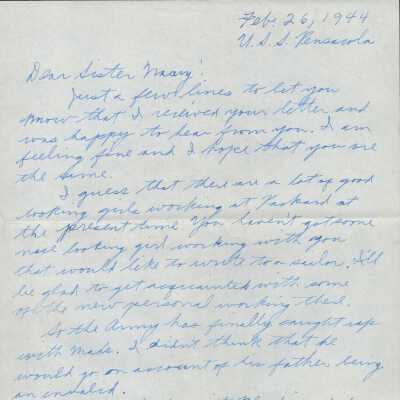 Feb. 26, 1944
U.S.S. Pensacola
Dear Sister Mary!
Just a few lines to let you
know that I recived your letter and
was happy to hear from you. I am
feeling fine and I hope that you are
the same.
I guess that there are a lot of good
looking girls working at Packard at
the present time. You haven't got some
nice looking girl working with you
that would like to write to a sailor. I'll
be glad to get acquainted with some
of the new personal working there.
So the Army has finally caught up
with Made. I didn't think that he
would go on account of his father being
an invalid.